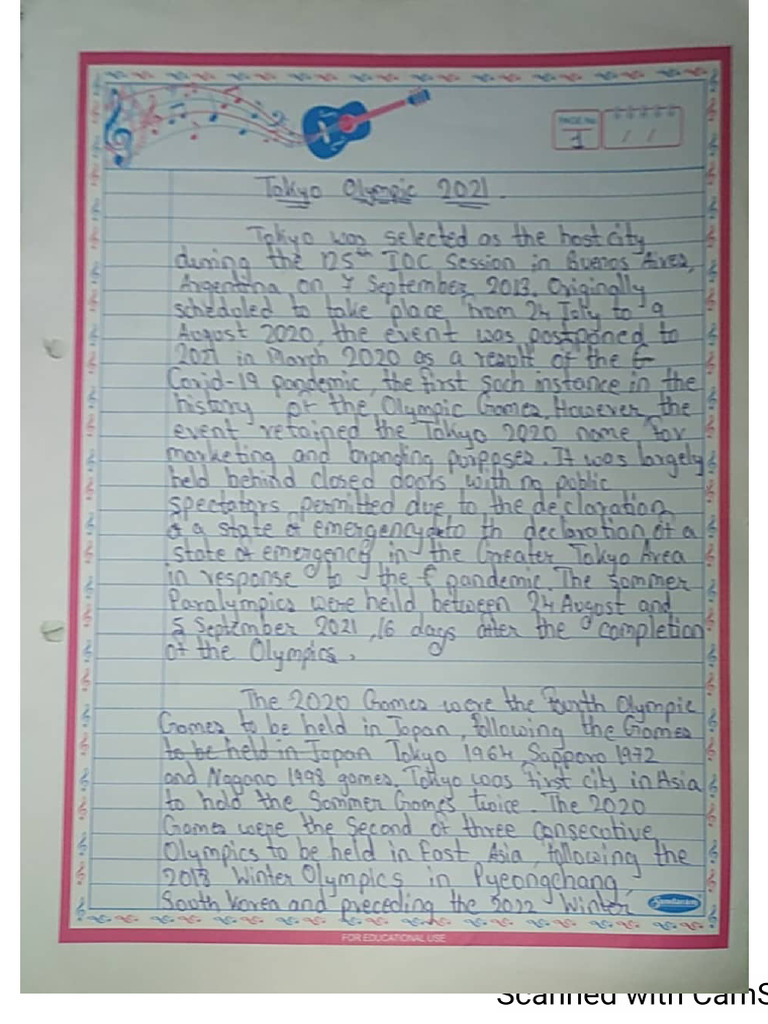 PAGE No
1
/ /
Tokyo Olympic 2021.
Tokyo was selected as the host city
during the 125th IOC Session in Buenos Aires,
Argentina on 7 September, 2013. Originally
scheduled to take place from 24 July to 9
August 2020, the event was postponed to
2021 in March 2020 as a result of the
Covid-19 pandemic, the first such instance in the
history of the Olympic Games, However, the
event retained the Tokyo 2020 name for
marketing and branding purposes. It was largely
held behind closed doors with no public
spectators permitted due to the declaration
of a state of emergency to th declaration of a
state of emergency in the Greater Tokyo Area
in response to the pandemic. The Summer
Paralympics were heild between 24 August and
5 September 2021, 16 days after the completion
of the Olympics.
The 2020 Games were the fourth Olympic
Games to be held in Japan, following the Games
to be held in Japan Tokyo 1964, Sapporo 1972
and Nagano 1998 games. Tokyo was first city in Asia
to hold the Summer Games twice. The 2020
Games were the Second of three consecutive
Olympics to be held in East Asia, following the
2018 Winter Olympics in Pyeongchang,
South Korea and preceding the 2022 Winter
Sundaram
FOR EDUCATIONAL USE
Scanned with CamS